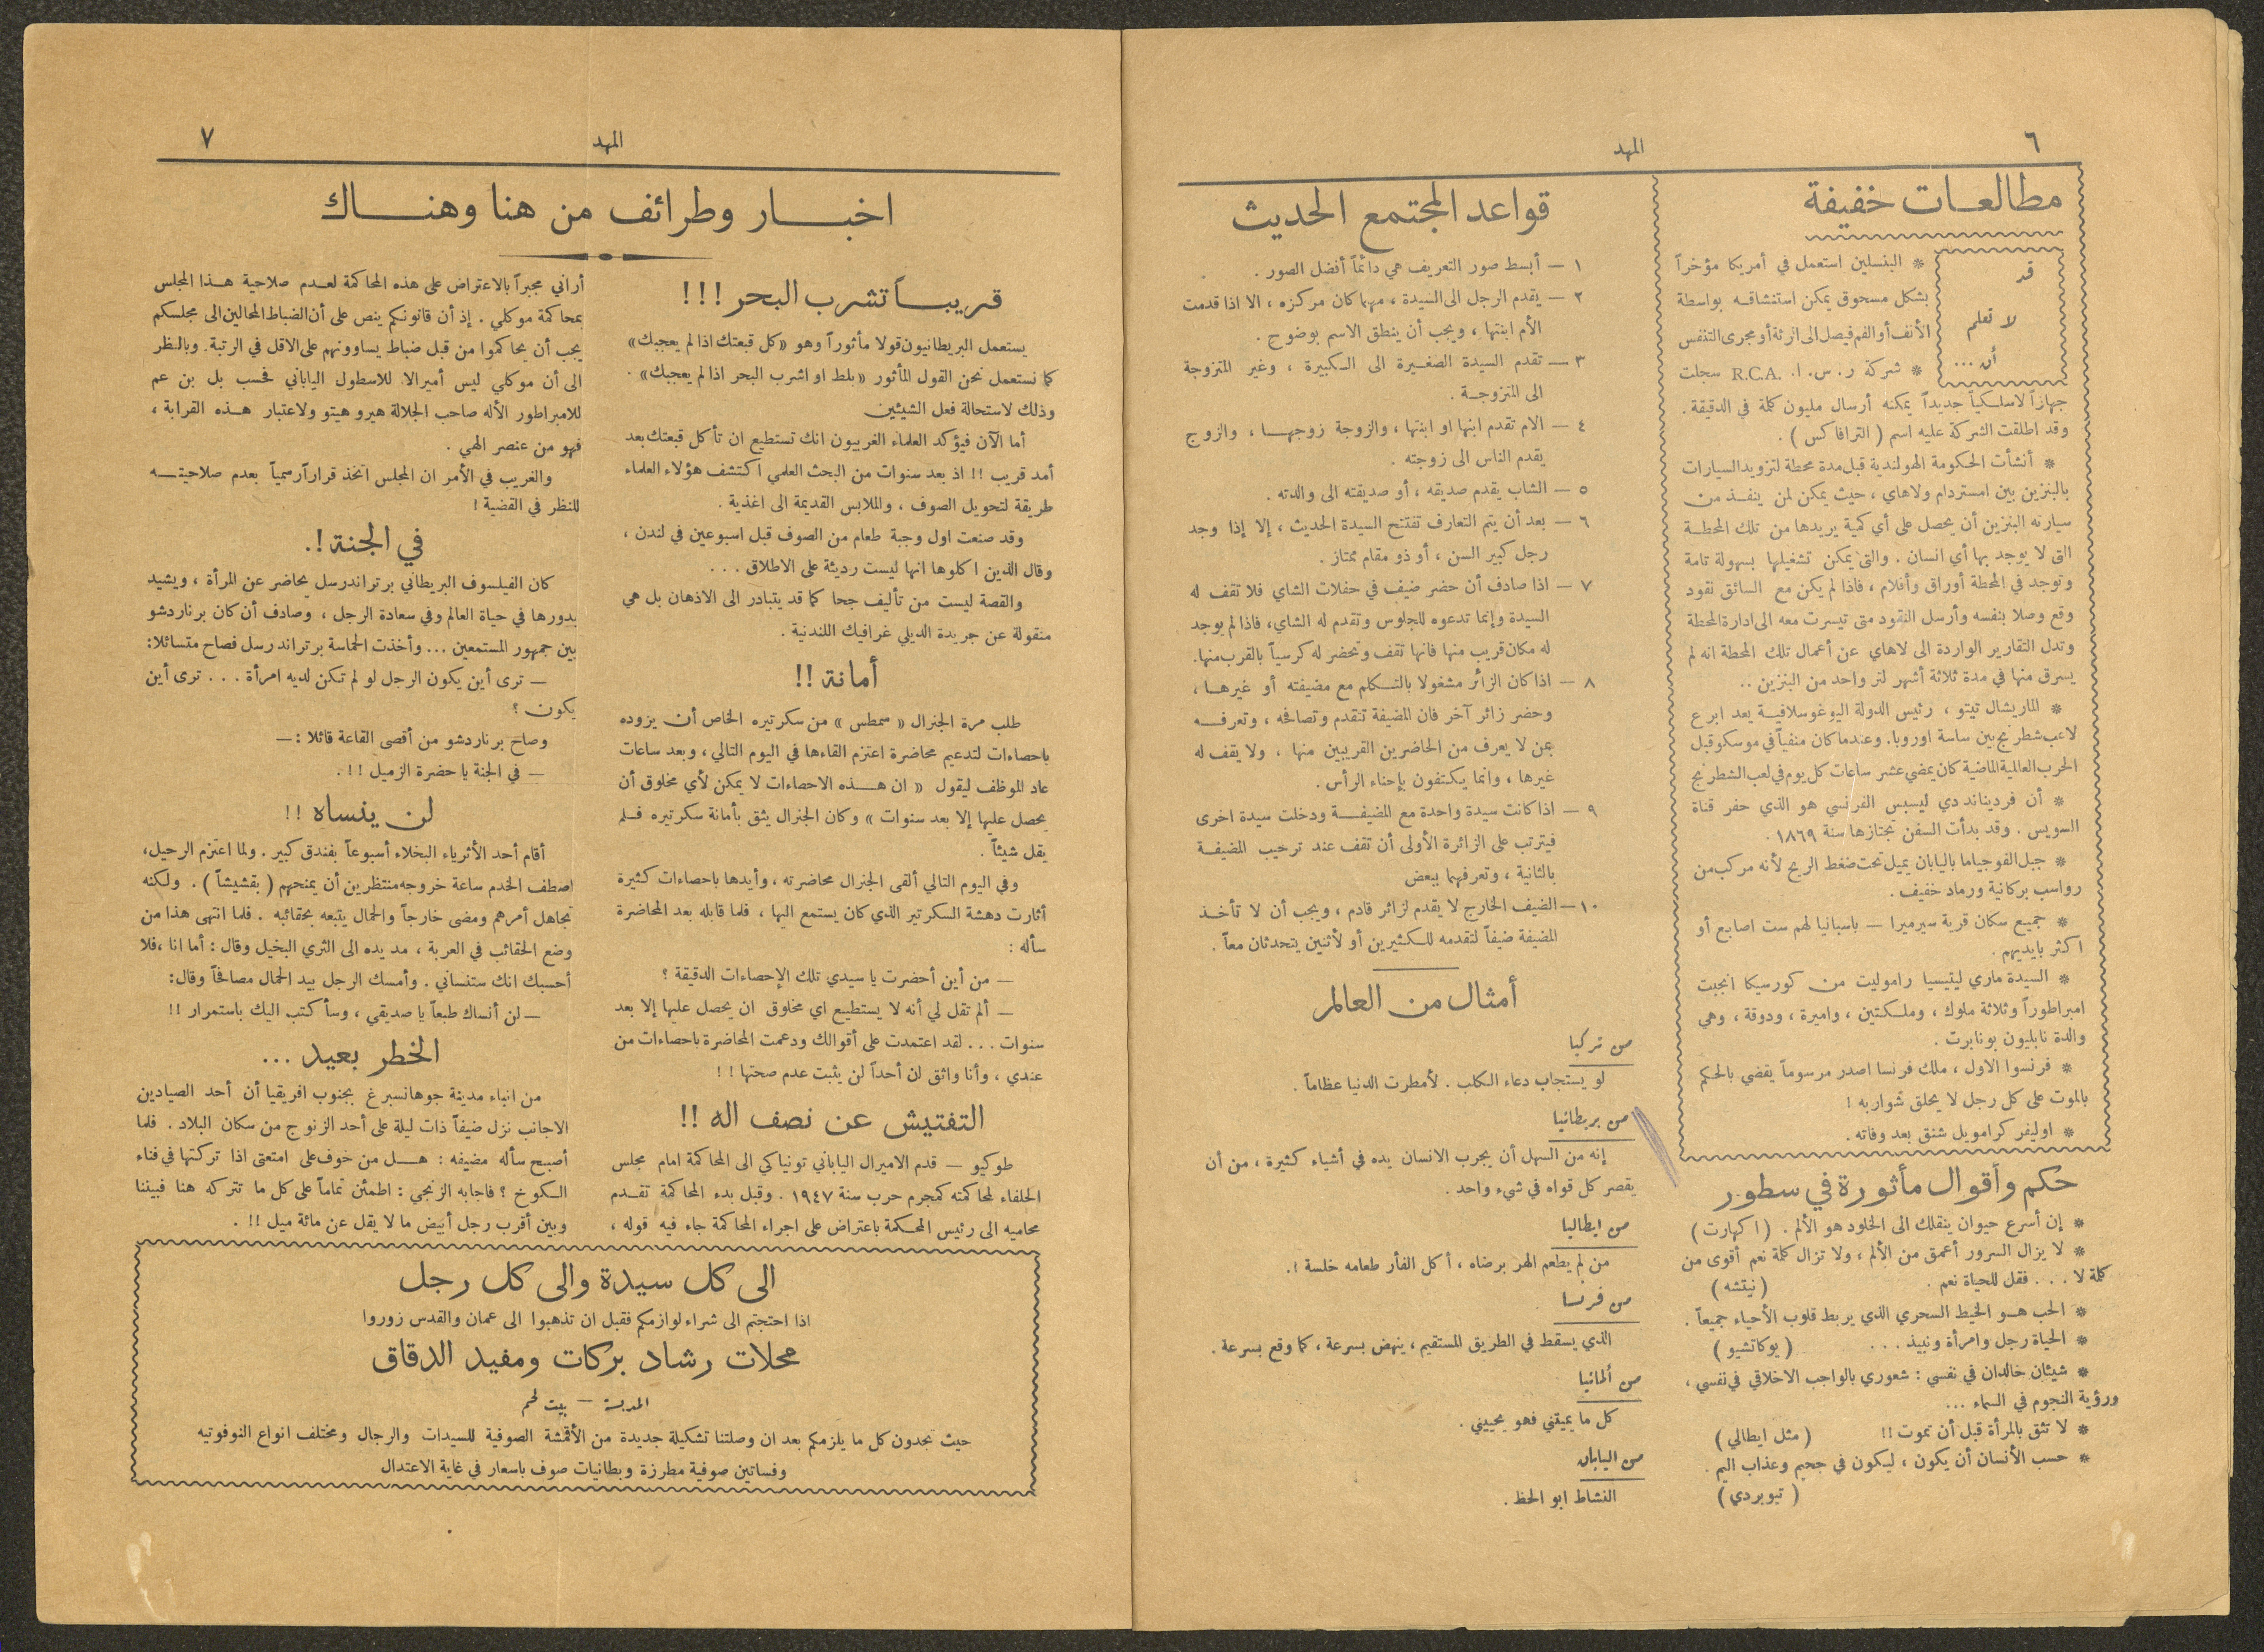 ٦
المهد
مطالعات خفيفة
قد
لا تعلم
أن ...
* البنسلين استعمل في أمريكا مؤخراً
بشكل مسحوق يمكن استنشاقه بواسطة
الأنف أو الفم فيصل الى الرئة أو مجرى التنفس
* شركة ر. س. ا. R.C.A. سجلت
جهازاً لاسلكياً جديداً يمكنه أرسال مليون كلمة في الدقيقة.
وقد اطلقت الشركة عليه اسم ( الترافاكس ) .
* أنشأت الحكومة الهولندية قبل مدة محطة لتزويد السيارات
بالبنزين بين امستردام ولاهاي ، حيث يمكن لمن ينفذ من
سيارته البنزين أن يحصل على أي كمية يريدها من تلك المحطة
التي لا يوجد بها أي انسان . والتي يمكن تشغيلها بسهولة تامة
وتوجد في المحطة أوراق وأقلام ، فاذا لم يكن مع السائق نقود
وقع وصلا بنفسه وأرسل النقود متى تيسرت معه الى ادارة المحطة
وتدل التقارير الواردة الى لاهاي عن أعمال تلك المحطة انه لم
يسرق منها في مدة ثلاثة أشهر لتر واحد من البنزين ..
* الماريشال تيتو ، رئيس الدولة اليوغوسلافية يعد ابرع
لاعب شطرنج بين ساسة اوروبا. وعندما كان منفياً في موسكو قبل
الحرب العالمية الماضية كان يمضي عشر ساعات كل يوم في لعب الشطرنج
* أن فرديناند دي ليسبس الفرنسي هو الذي حفر قناة
السويس . وقد بدأت السفن تجتازها سنة ١٨٦٩ .
* جبل الفوجياما باليابان يميل تحت ضغط الريح لأنه مركب من
رواسب بركانية ورماد خفيف .
* جميع سكان قرية سيرميرا — باسبانيا لهم ست اصابع أو
اكثر بايديهم .
* السيدة ماري ليتيسيا راموليت من كورسيكا انجبت
امبراطوراً وثلاثة ملوك ، وملكتين ، واميرة ، ودوقة ، وهي
والدة نابليون بونابرت .
* فرنسوا الاول ، ملك فرنسا اصدر مرسوماً يقضي بالحكم
بالموت على كل رجل لا يحلق شواربه !
* اوليفر كرامويل شنق بعد وفاته .
حكم وأقوال مأثورة في سطور
* إن أسرع حيوان ينقلك الى الخلود هو الألم . ( اكهارت )
* لا يزال السرور أعمق من الألم ، ولا تزال كلمة نعم أقوى من
كلمة لا . . . فقل للحياة نعم . ( نيتشه )
* الحب هو الخيط السحري الذي يربط قلوب الأحياء جميعاً .
* الحياة رجل وامرأة ونبيذ . . . ( يوكاتشيو )
* شيئان خالدان في نفسي : شعوري بالواجب الاخلاقي في نفسي ،
ورؤية النجوم في السماء ...
* لا تثق بالمرأة قبل أن تموت !! ( مثل ايطالي )
* حسب الأنسان أن يكون ، ليكون في جحيم وعذاب اليم .
( تيوبردي )
قواعد المجتمع الحديث
١ — أبسط صور التعريف هي دائماً أفضل الصور .
٢ — يقدم الرجل الى السيدة ، مهما كان مركزه ، الا اذا قدمت
الأم ابنتها ، ويجب أن ينطق الاسم بوضوح .
٣ — تقدم السيدة الصغيرة الى الكبيرة ، وغير المتزوجة
الى المتزوجة .
٤ — الام تقدم ابنها او ابنتها ، والزوجة زوجها ، والزوج
يقدم الناس الى زوجته .
٥ — الشاب يقدم صديقه ، أو صديقته الى والدته .
٦ — بعد أن يتم التعارف تفتتح السيدة الحديث ، إلا إذا وجد
رجل كبير السن ، أو ذو مقام ممتاز .
٧ — اذا صادف أن حضر ضيف في حفلات الشاي فلا تقف له
السيدة وإنما تدعوه للجلوس وتقدم له الشاي ، فاذا لم يوجد
له مكان قريب منها فانها تقف وتحضر له كرسياً بالقرب منها.
٨ — اذا كان الزائر مشغولا بالتكلم مع مضيفته أو غيرها ،
وحضر زائر آخر فان المضيفة تتقدم وتصافحه ، وتعرفه
بمن لا يعرف من الحاضرين القريبين منها ، ولا يقف له
غيرها ، وانما يكتفون بإحناء الرأس .
٩ — اذا كانت سيدة واحدة مع المضيفة ودخلت سيدة اخرى
فيترتب على الزائرة الأولى أن تقف عند ترحيب المضيفة
بالثانية ، وتعرفهما ببعض
١٠ — الضيف الخارج لا يقدم لزائر قادم ، ويجب أن لا تأخذ
المضيفة ضيفاً لتقدمه للكثيرين أو لأثنين يتحدثان معاً .
أمثال من العالم
من تركيا
لو يستجاب دعاء الكلب . لأمطرت الدنيا عظاماً .
من بريطانيا
إنه من السهل أن يجرب الانسان يده في أشياء كثيرة ، من أن
يقصر كل قواه في شيء واحد .
من ايطاليا
من لم يطعم الهر برضاه ، أكل الفأر طعامه خلسة !.
من فرنسا
الذي يسقط في الطريق المستقيم ، ينهض بسرعة ، كما وقع بسرعة .
من ألمانيا
كل ما يميتني فهو يحييني .
من اليابان
النشاط ابو الحظ .
المهد
٧
اخبار وطرائف من هنا وهناك
قريباً تشرب البحر !!!
يستعمل البريطانيون قولا مأثوراً وهو «كل قبعتك اذا لم يعجبك»
كما نستعمل نحن القول المأثور «بلط او اشرب البحر اذا لم يعجبك» .
وذلك لاستحالة فعل الشيئين
أما الآن فيؤكد العلماء الغربيون انك تستطيع ان تأكل قبعتك بعد
أمد قريب !! اذ بعد سنوات من البحث العلمي اكتشف هؤلاء العلماء
طريقة لتحويل الصوف ، والملابس القديمة الى اغذية .
وقد صنعت اول وجبة طعام من الصوف قبل اسبوعين في لندن ،
وقال الذين اكلوها انها ليست رديئة على الاطلاق . . .
والقصة ليست من تأليف جحا كما قد يتبادر الى الاذهان بل هي
منقولة عن جريدة الديلي غرافيك اللندنية .
أمانة !!
طلب مرة الجنرال « سمطس » من سكرتيره الخاص أن يزوده
باحصاءات لتدعيم محاضرة اعتزم القاءها في اليوم التالي ، وبعد ساعات
عاد الموظف ليقول « ان هذه الاحصاءات لا يمكن لأي مخلوق أن
يحصل عليها إلا بعد سنوات » وكان الجنرال يثق بأمانة سكرتيره فلم
يقل شيئاً .
وفي اليوم التالي ألقى الجنرال محاضرته ، وأيدها باحصاءات كثيرة
أثارت دهشة السكرتير الذي كان يستمع اليها ، فلما قابله بعد المحاضرة
سأله :
— من أين أحضرت يا سيدي تلك الإحصاءات الدقيقة ؟
— ألم تقل لي أنه لا يستطيع اي مخلوق ان يحصل عليها إلا بعد
سنوات . . . لقد اعتمدت على أقوالك ودعمت المحاضرة باحصاءات من
عندي ، وأنا واثق ان أحداً لن يثبت عدم صحتها ! !
التفتيش عن نصف اله !!
طوكيو — قدم الاميرال الياباني تونياكي الى المحاكمة امام مجلس
الحلفاء لمحاكمته كمجرم حرب سنة ١٩٤٧ . وقبل بدء المحاكمة تقدم
محاميه الى رئيس المحكمة باعتراض على اجراء المحاكمة جاء فيه قوله ،
أراني مجبراً بالاعتراض على هذه المحاكمة لعدم صلاحية هذا المجلس
بمحاكمة موكلي . إذ أن قانونكم ينص على أن الضباط المحالين الى مجلسكم
يجب أن يحاكموا من قبل ضباط يساوونهم على الاقل في الرتبة. وبالنظر
الى أن موكلي ليس أميرالا للاسطول الياباني فحسب بل بن عم
للامبراطور الأله صاحب الجلالة هيروهيتو ولاعتبار هذه القرابة ،
فهو من عنصر الهي .
والغريب في الأمر ان المجلس اتخذ قراراً رسمياً بعدم صلاحيته
للنظر في القضية !
في الجنة !.
كان الفيلسوف البريطاني برتراندرسل يحاضر عن المرأة ، ويشيد
بدورها في حياة العالم وفي سعادة الرجل ، وصادف أن كان برناردشو
بين جمهور المستمعين ... وأخذت الحماسة برتراند رسل فصاح متسائلا:
— ترى أين يكون الرجل لو لم تكن لديه امرأة . . . ترى أين
يكون ؟
وصاح برناردشو من أقصى القاعة قائلا :—
— في الجنة يا حضرة الزميل !! .
لن ينساه !!
أقام أحد الأثرياء البخلاء أسبوعاً بفندق كبير . ولما اعتزم الرحيل،
اصطف الخدم ساعة خروجه منتظرين أن يمنحهم ( بقشيشاً ) . ولكنه
تجاهل أمرهم ومضى خارجاً والحمال يتبعه بحقائبه . فلما انتهى هذا من
وضع الحقائب في العربة ، مد يده الى الثري البخيل وقال : أما انا ،فلا
أحسبك انك ستنساني . وأمسك الرجل بيد الحمال مصافحاً وقال:
— لن أنساك طبعاً يا صديقي ، وسأكتب اليك باستمرار !!
الخطر بعيد ...
من انباء مدينة جوهانسبرغ بجنوب افريقيا أن أحد الصيادين
الاجانب نزل ضيفاً ذات ليلة على أحد الزنوج من سكان البلاد . فلما
أصبح سأله مضيفه : هل من خوف على امتعتي اذا تركتها في فناء
الكوخ ؟ فاجابه الزنجي : اطمئن تماماً على كل ما تتركه هنا فبيننا
وبين أقرب رجل أبيض ما لا يقل عن مائة ميل !! .
الى كل سيدة والى كل رجل
اذا احتجتم الى شراء لوازمكم فقبل ان تذهبوا الى عمان والقدس زوروا
محلات رشاد بركات ومفيد الدقاق
المدبسة — بيت لحم
حيث تجدون كل ما يلزمكم بعد ان وصلتنا تشكيلة جديدة من الأقمشة الصوفية للسيدات والرجال ومختلف انواع النوفوتيه
وفساتين صوفية مطرزة وبطانيات صوف باسعار في غاية الاعتدال